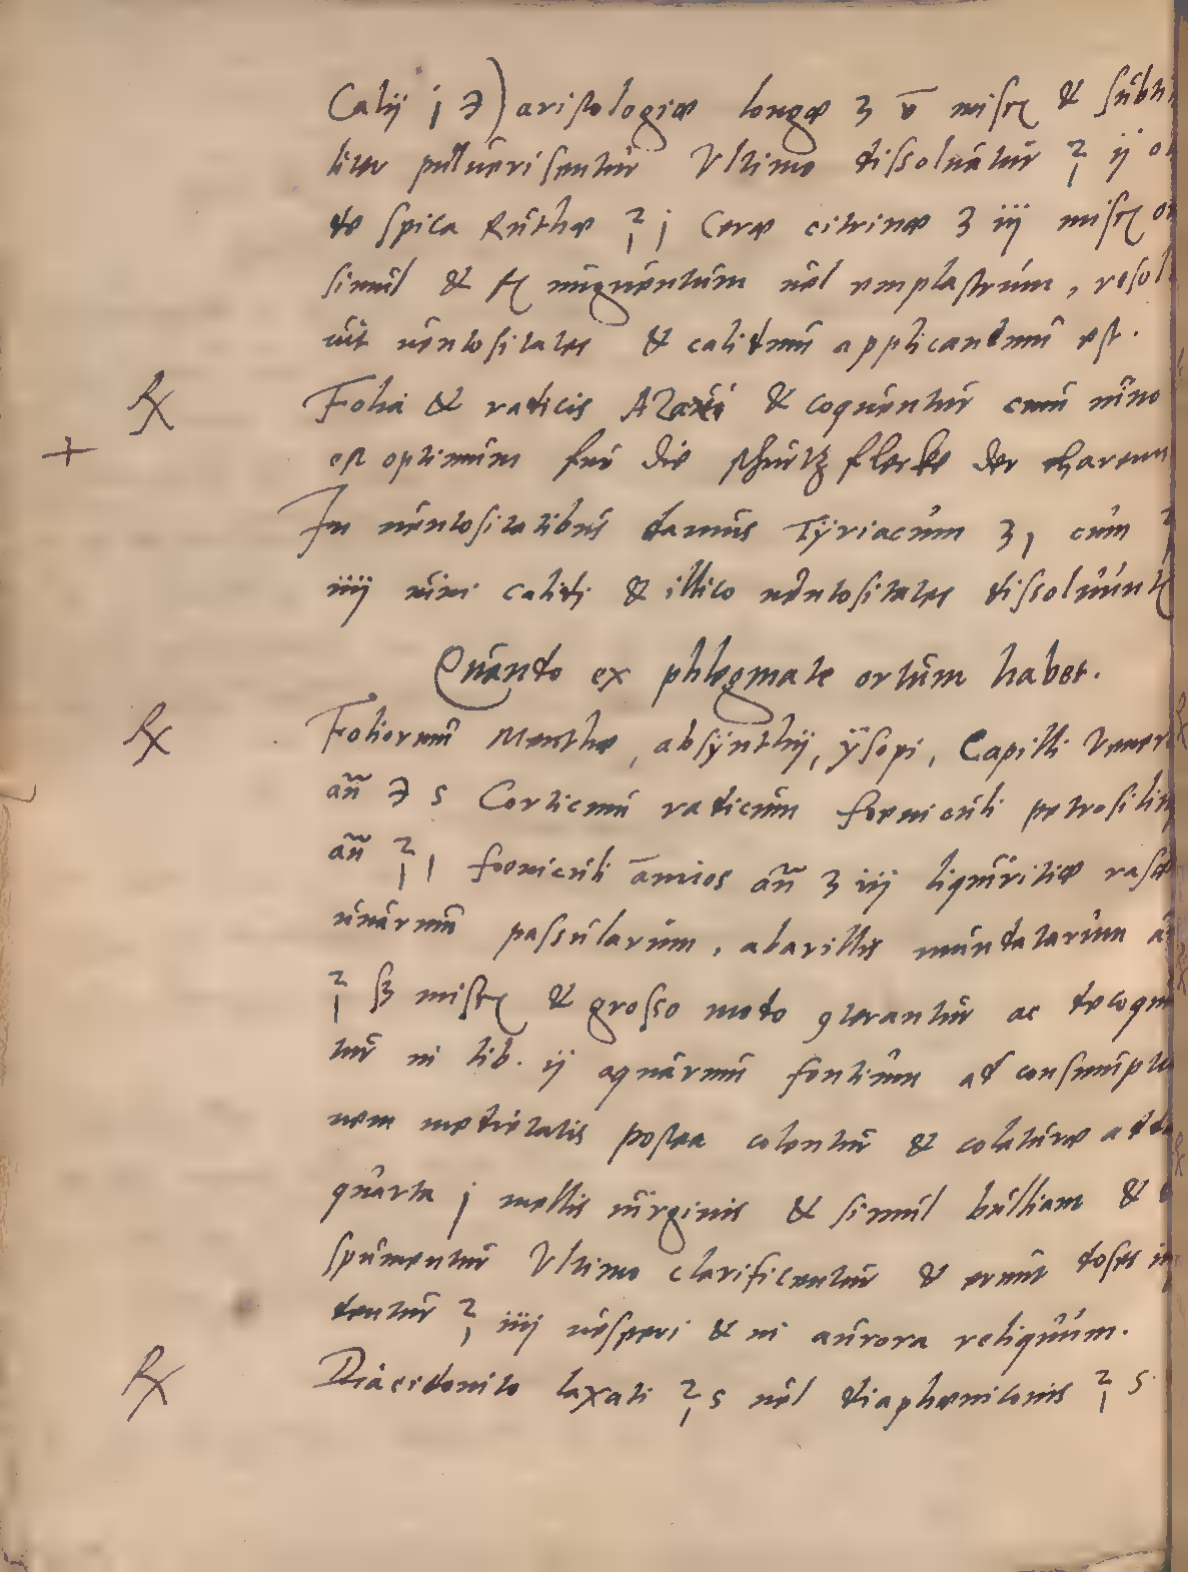 Calij j ℈) aristologiæ longæ ʒ v misc& & subti
liter pulverisentur Ultimo dissolvatur ℥ ij
de spica Ruthæ ℥ j Ceræ citrinæ ʒ iij misc&
simul & f& unguentum vel emplastrum, resol
vit ventositates & calidum applicandum est.
℞ Folia & radicis & coquentur cum vino
+ est optimum fur die flecke der
In ventositatibus damus Tÿriacum ʒ j cum ℥
iiij vini calidi & illico ventositates dissolvunt
Quando ex phlegmate ortum habet.
℞ Foliorum Menthæ, absÿnthij, ÿsopi, Capilli Vener
añ ℈ s Corticum radicum foeniculi petrosilin
añ ℥ j foeniculi amios añ ʒ iij liquiritiæ rasæ
uvarum passularum, abarillis mundatarum añ
℥ ß misc& & grosso modo 9terantur ac decoqu
tur in lib. ij aquarum fontium ad consumptio
nem medietatis postea colentur & colaturæ adde
quarta j mellis virginis & simul bulliant &
spumentur Ultimo clarificentur & erunt doses
dentur ℥ iiij vesperi & in aurora reliquum.
℞ Diacidonito laxati ℥ s vel diaphæniconis ℥ s